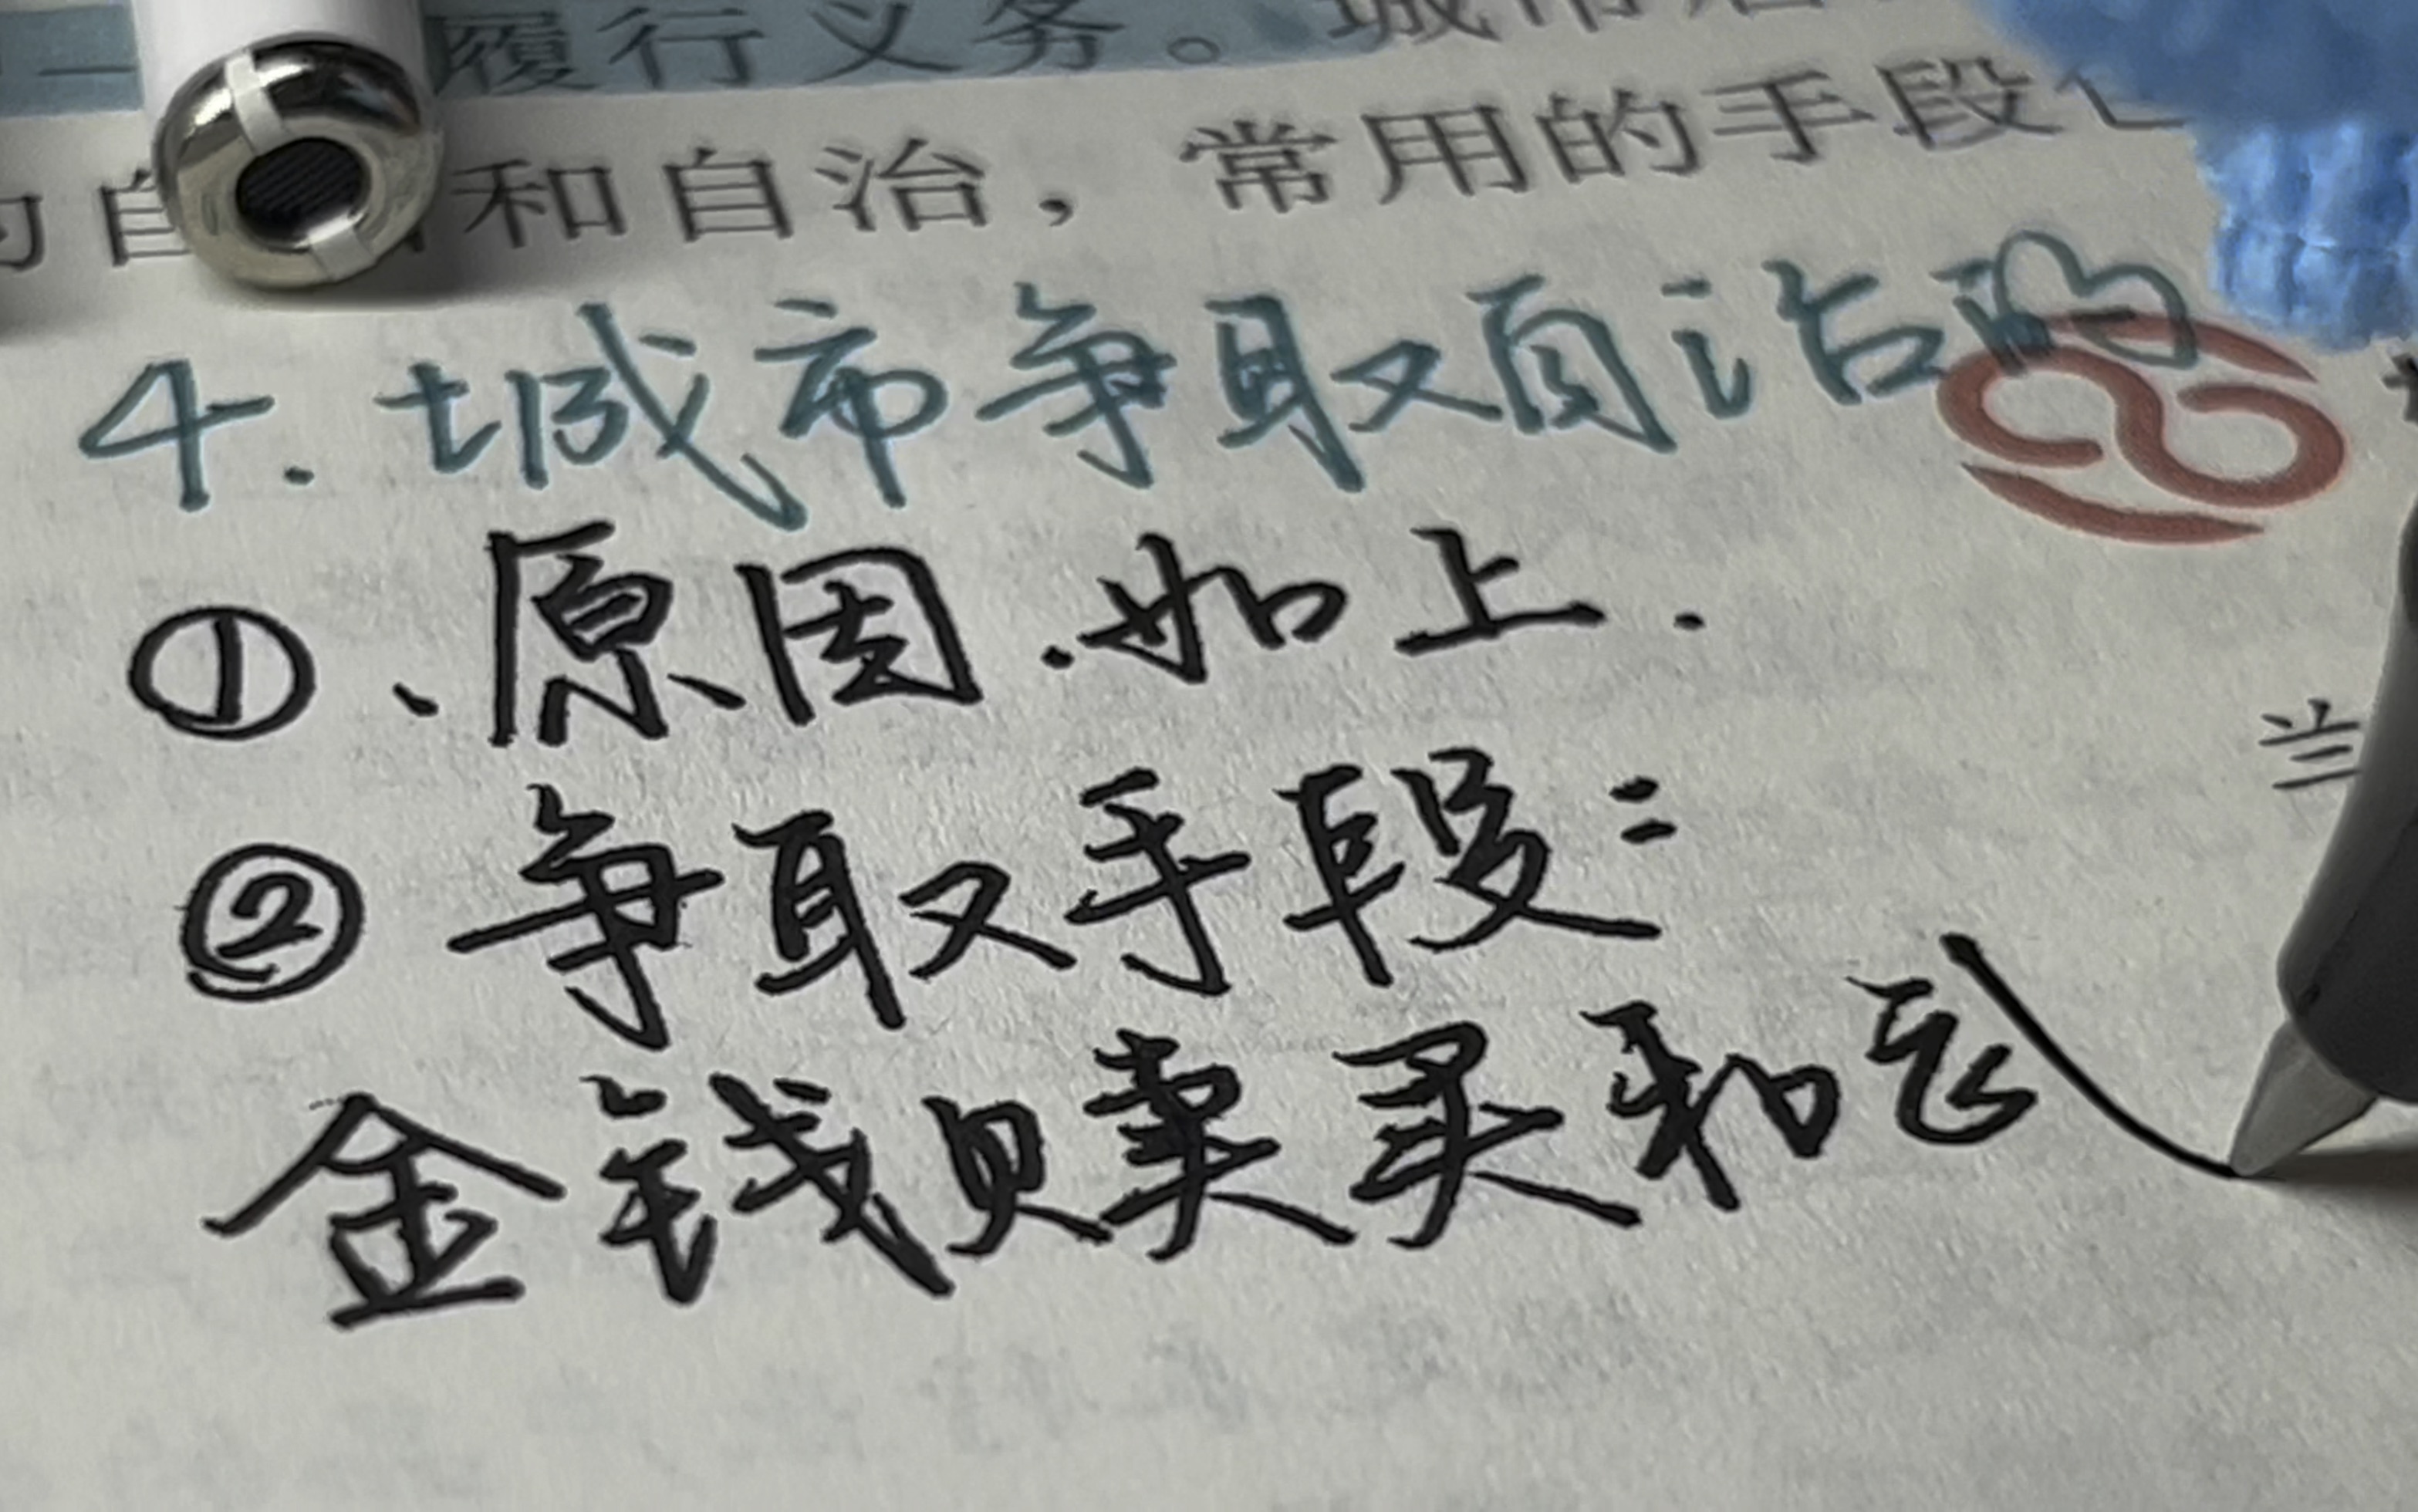 履行义务。城市
和自治，常用的手段
4.城市争取自治的
①、原因.如上.
②争取手段:
金钱赎买和武